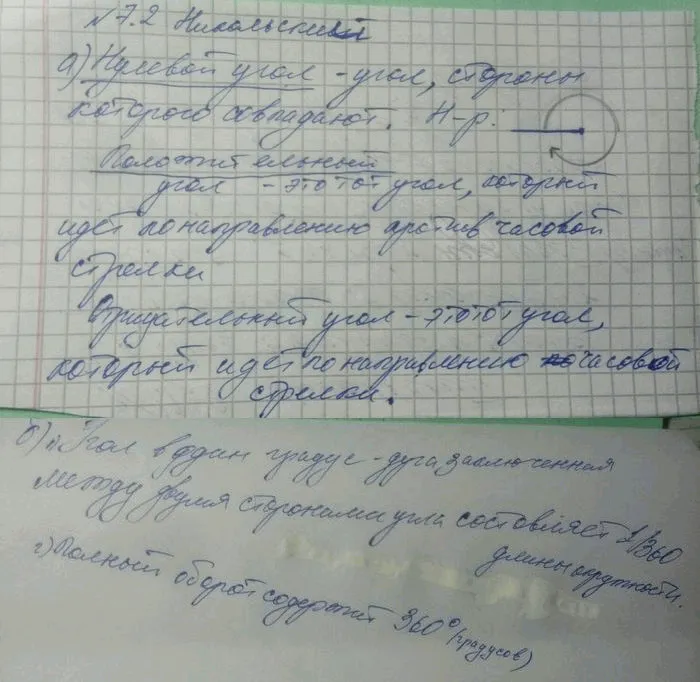 №7.2 Никольский
а) Нулевой угол - угол, стороны
которого совпадают. Н-р:
Положительный
угол - это тот угол, который
идёт по направлению против часовой
стрелки
Отрицательный угол - это тот угол,
который идёт по направлению по часовой
стрелки.
б) 1) Угол в один градус - дуга заключенная
между двумя сторонами угла составляет 1/360
длины окружности.
2) Полный оборот содержит 360° (градусов)